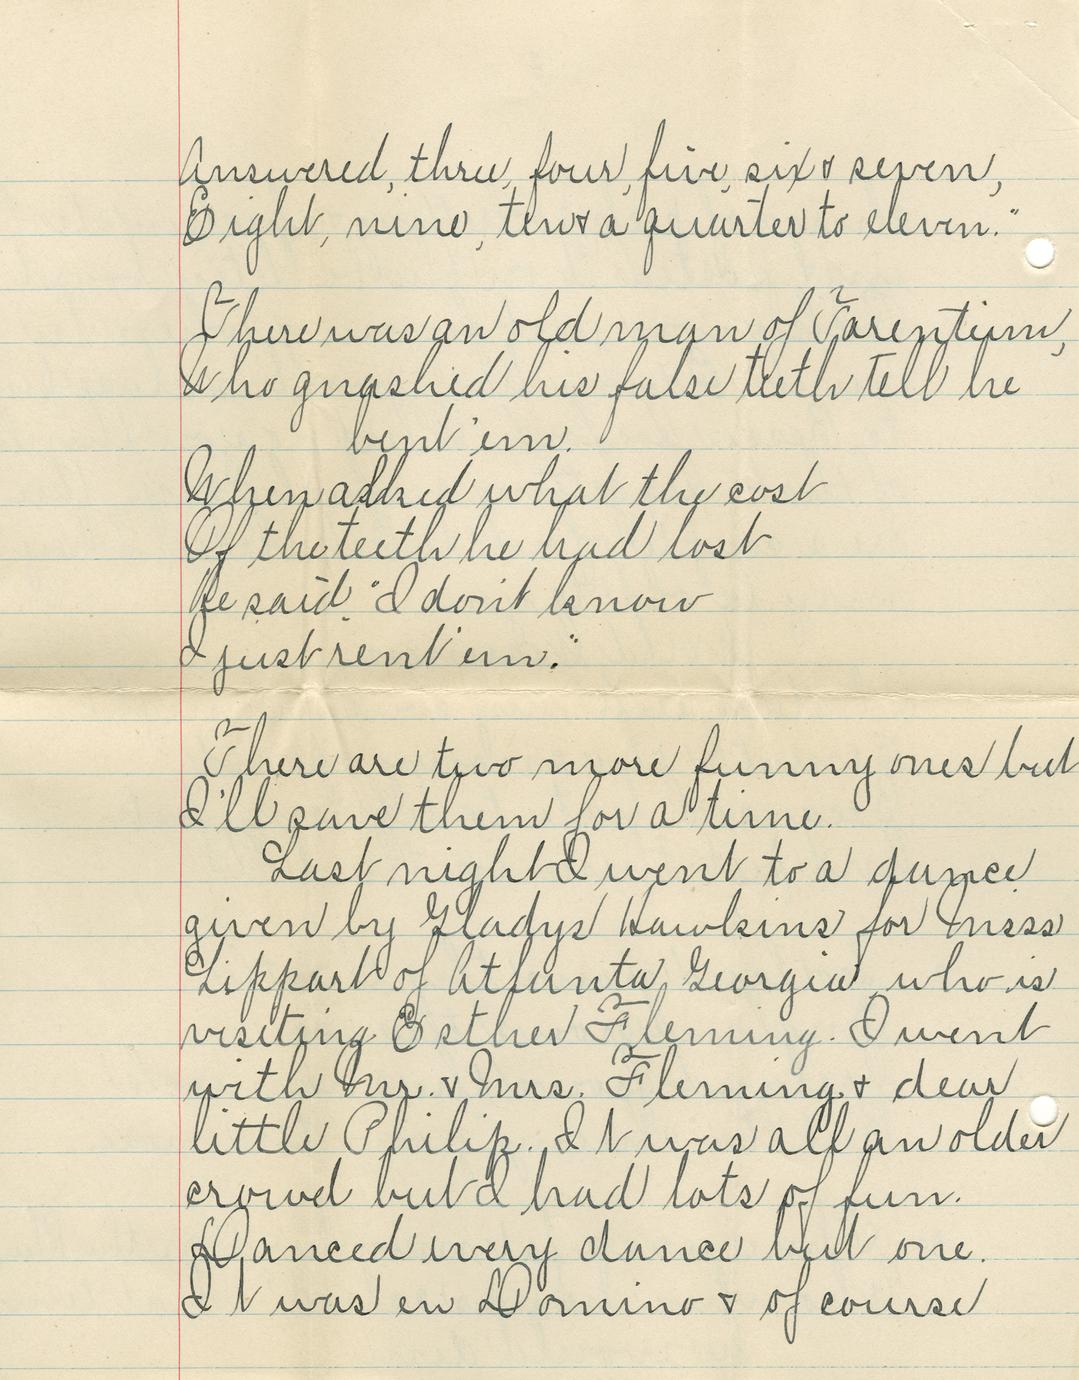 Answered, three, four, five, six & seven,
Eight, nine, ten & a quarter to eleven."
There was an old man of Tarentium,
Who gnashed his false teeth tell he
bent 'em.
When asked what the cost
Of the teeth he had lost
He said, "I don't know
I just rent 'em."
There are two more funny ones but
I'll save them for a time.
Last night I went to a dance
given by Gladys Hawkins for Miss
Lippart of Atlanta, Georgia who is
visiting Esther Fleming. I went
with Mr. & Mrs. Fleming & dear
little Philip. It was all an older
crowd but I had lots of fun.
Danced every dance but one.
It was en Domino & of course